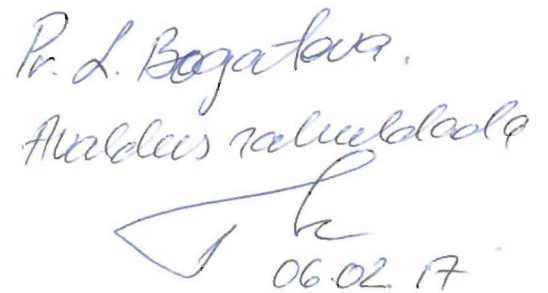 Pr. L. Bogatova.
Avaldus rahuldada
06.02.17